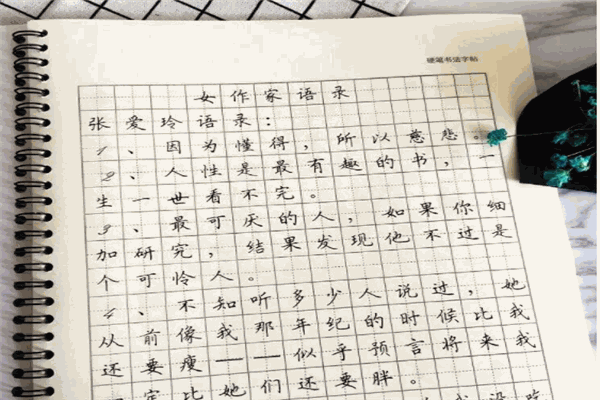 硬笔书法字帖
女作家语录
张爱玲语录：
1、因为懂得，所以慈悲。
2、人性是最有趣的书，一
生一世看不完。
3、最可厌的人，如果你细
加研究，结果发现他不过是
个可怜人。
4、不知听多少人说过，她
从前像我那年纪的时候比我
还要瘦——似乎预言将来我
定比她们还要胖。
没吃